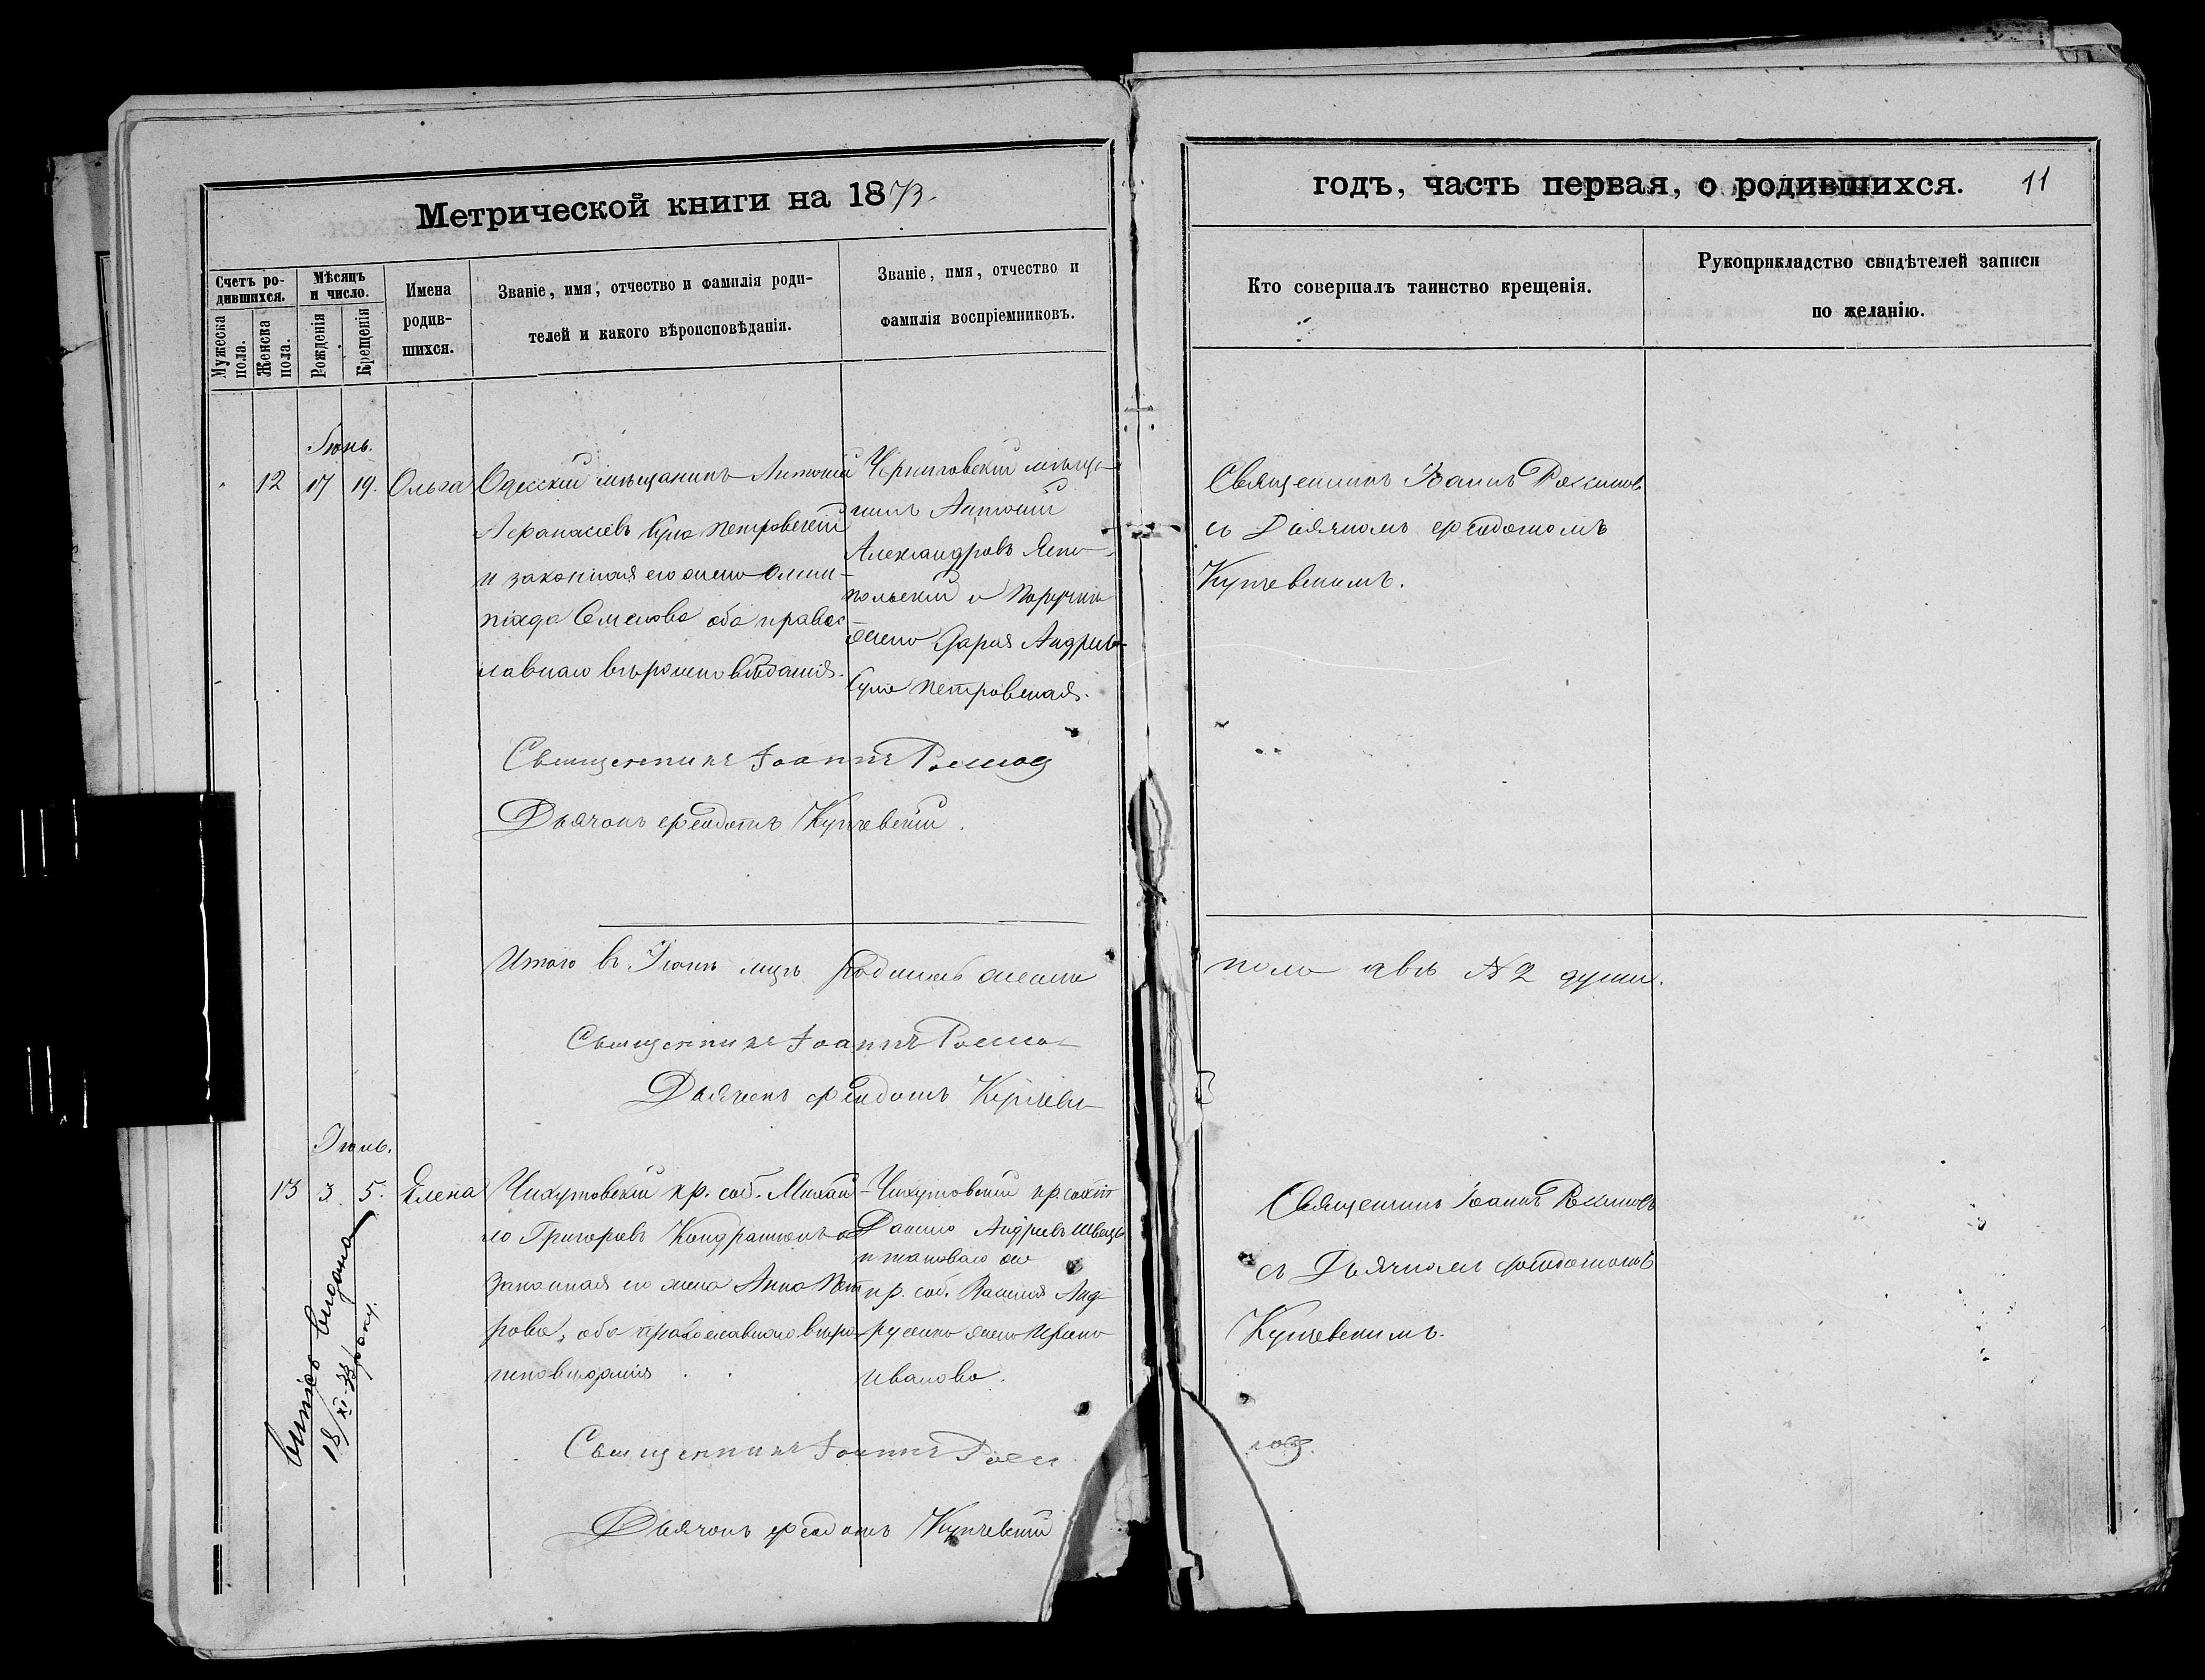 Метрической книги на 1873.
годъ, часть первая, о родившихся. 11
Счетъ ро-
дившихся.
Мѣсяцъ
и число.
Мужеска
пола.
Женска
пола.
Рожденія
Крещенія
Имена
родив-
шихся.
Званіе, имя, отчество и фамилія роди-
телей и какого вѣроисповѣданія.
Званіе, имя, отчество и
фамилія воспріемниковъ.
Кто совершалъ таинство крещенія.
Рукоприкладство свидѣтелей записи
по желанію.
Іюнь.
12 17 19. Ольга
Одесскій мѣщанинъ Антоній
Афанасіевъ Кула Петровскій
и законная его жена Олим-
піада Семенова оба правос-
лавнаго вѣроисповѣданія.
Черниговскій мѣща-
нинъ Антоній
Александровъ
польскій и
жена Дарія Андреева
Петровская.
Священникъ Іоаннъ
съ Дьячкомъ Феодотомъ
Купчевскимъ.
Священникъ Іоаннъ
Дьячокъ Феодотъ Купчевскій.
Итого въ Іюнѣ мцѣ родилось женска
пола двѣ № 2 души.
Священникъ Іоаннъ
Дьячокъ Феодотъ Купчевс
Іюль.
13 3. 5. Елена
кр. соб. Михаи-
ло Григорьевъ и
законная его жена Анна Пет
рова, оба православнаго вѣро
исповѣданія
кр. собст
Данило Андреевъ Швецъ
и таковаго же
кр. соб. Василія Анд
русенко жена Ирина
Иванова.
Священникъ Іоаннъ
съ Дьячкомъ Феодотомъ
Купчевскимъ.
выпись выдана
18/XI 33 року.
Священникъ Іоаннъ
Дьячокъ Феодотъ Купчевскій